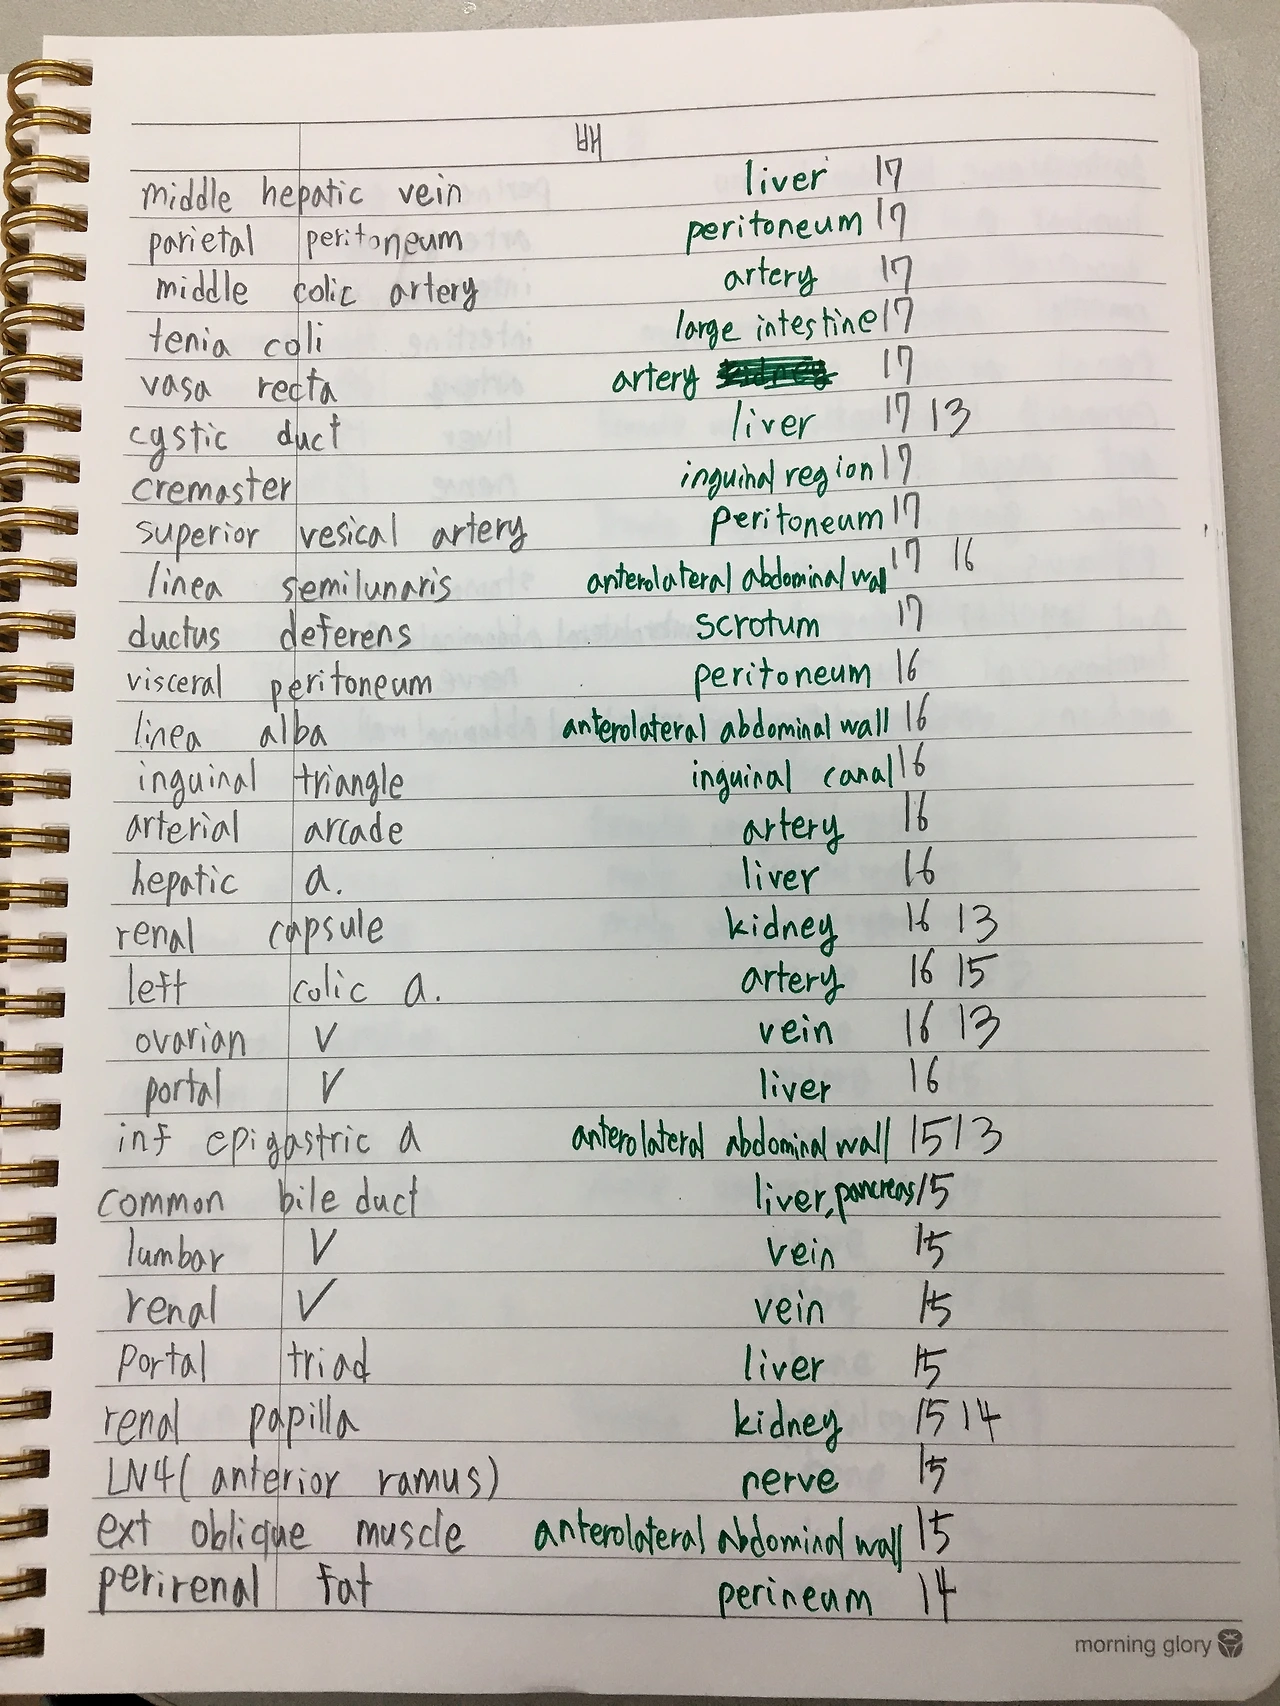 배
middle hepatic vein liver 17
parietal peritoneum peritoneum 17
middle colic artery artery 17
tenia coli large intestine 17
vasa recta artery 17
cystic duct liver 17 13
cremaster inguinal region 17
superior vesical artery peritoneum 17
linea semilunaris anterolateral abdominal wall 17 16
ductus deferens scrotum 17
visceral peritoneum peritoneum 16
linea alba anterolateral abdominal wall 16
inguinal triangle inguinal canal 16
arterial arcade artery 16
hepatic a. liver 16
renal capsule kidney 16 13
left colic a. artery 16 15
ovarian V vein 16 13
portal V liver 16
inf epigastric a anterolateral abdominal wall 15 13
common bile duct liver, pancreas 15
lumbar V vein 15
renal V vein 15
portal triad liver 15
renal papilla kidney 15 14
LN4 (anterior ramus) nerve 15
ext oblique muscle anterolateral abdominal wall 15
perirenal fat perineum 14
morning glory